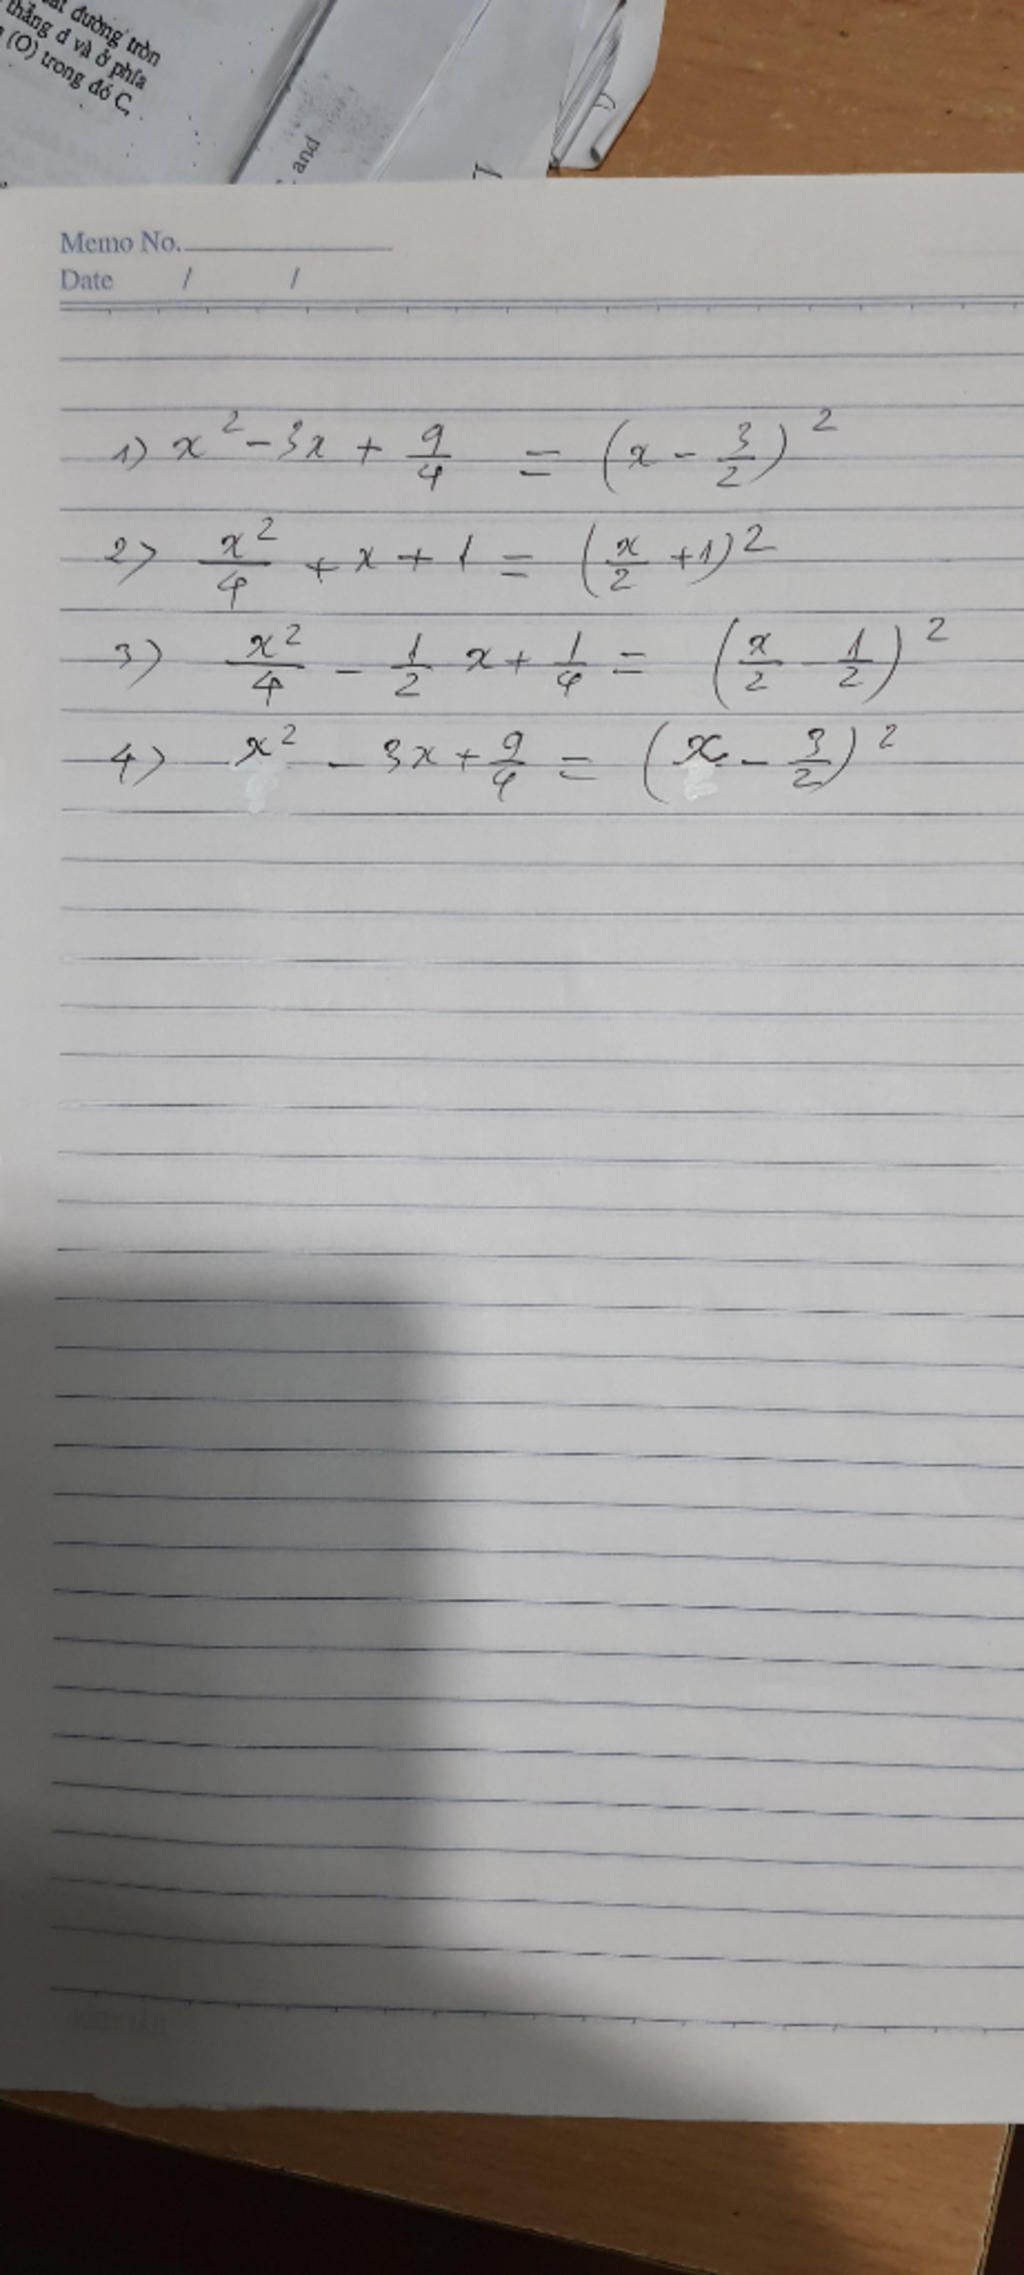 đường tròn
thẳng d và ở phía
(O) trong đó C,
and
Memo No.
Date / /
1) x² - 3x + 9/4 = (x - 3/2)²
2) x²/4 + x + 1 = (x/2 + 1)²
3) x²/4 - 1/2 x + 1/4 = (x/2 - 1/2)²
4) x² - 3x + 9/4 = (x - 3/2)²